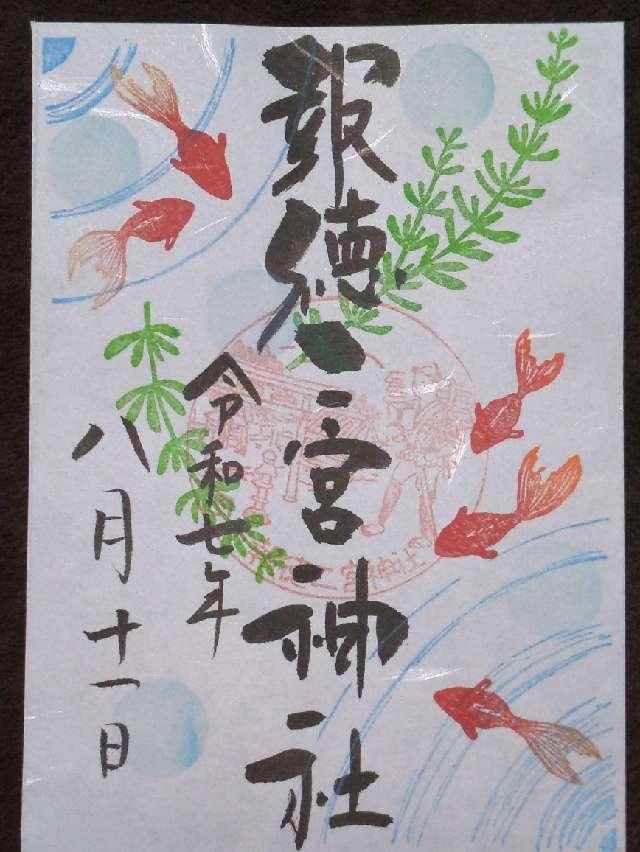 報徳二宮神社
令和七年
八月十一日
報徳二宮神社